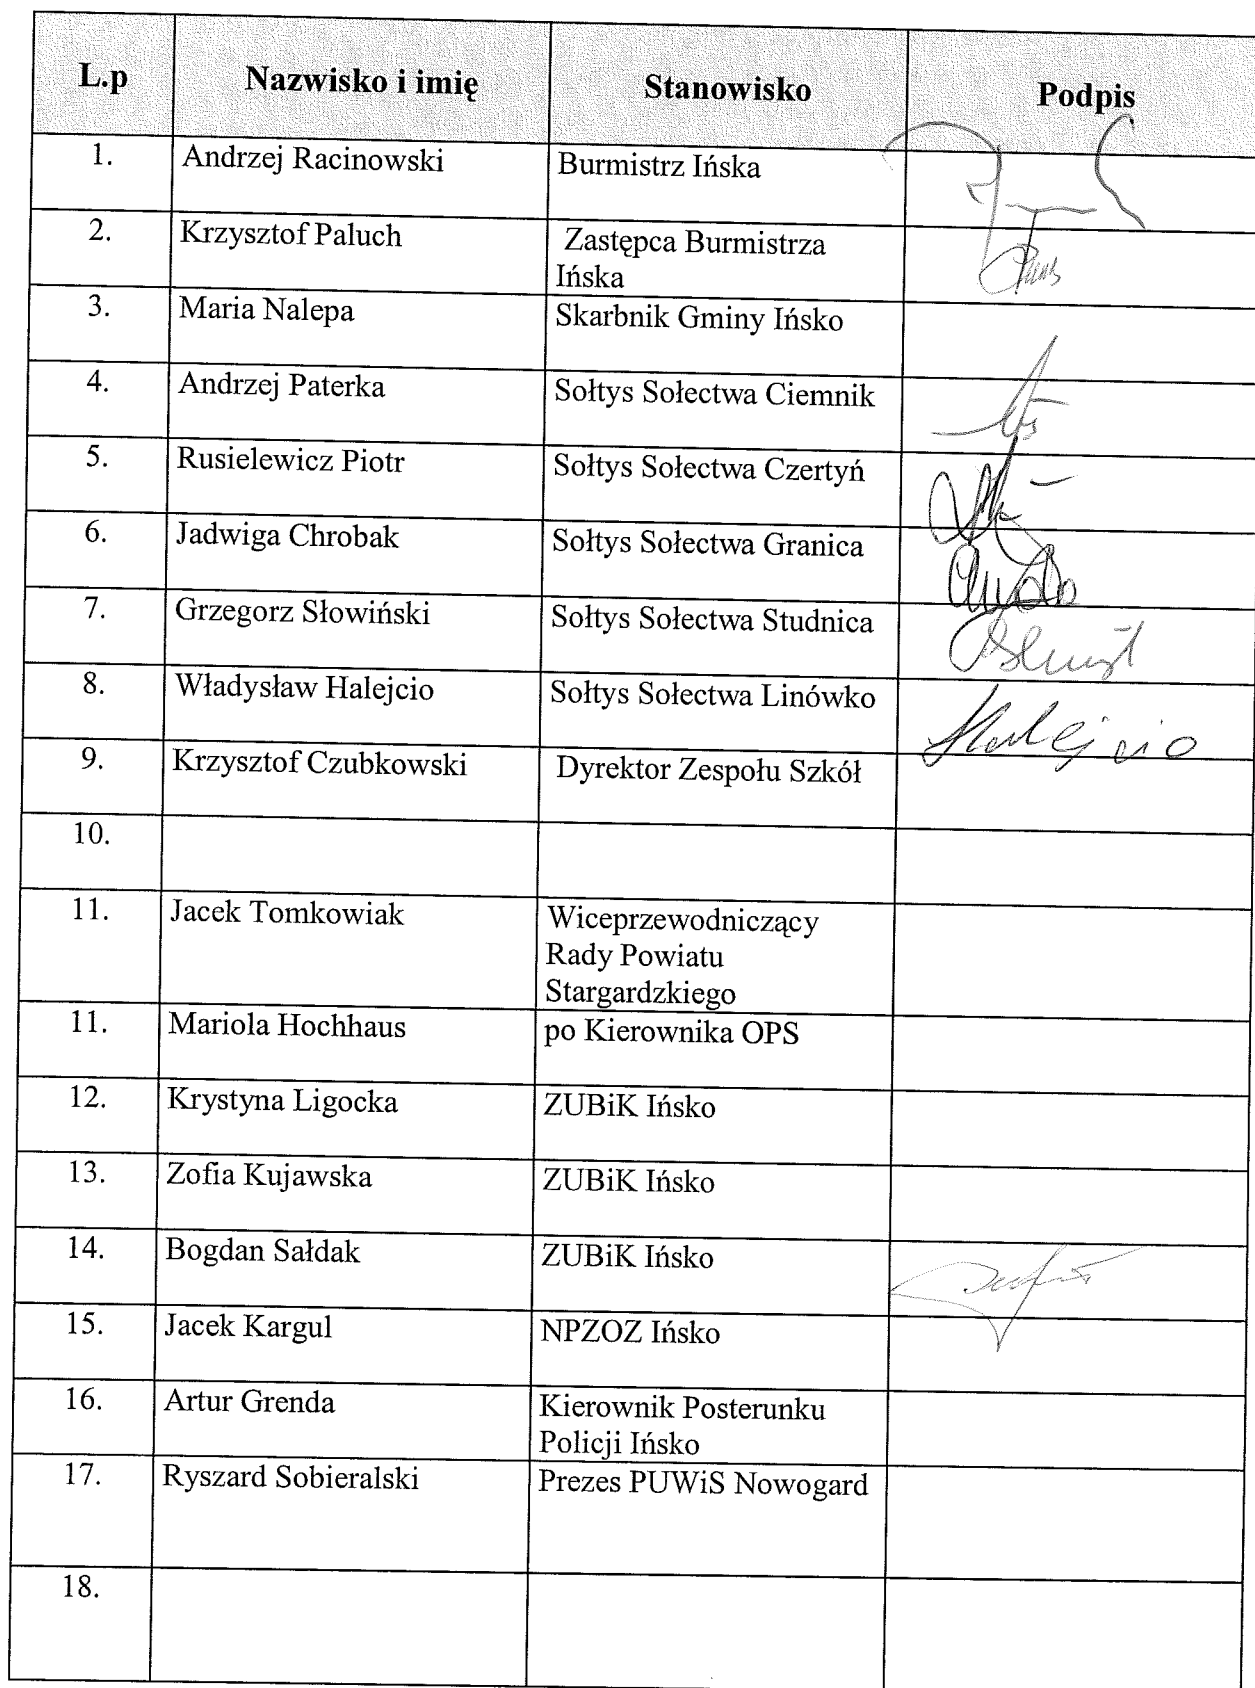 L.p Nazwisko i imię Stanowisko Podpis
1. Andrzej Racinowski Burmistrz Ińska
2. Krzysztof Paluch Zastępca Burmistrza
Ińska
3. Maria Nalepa Skarbnik Gminy Ińsko
4. Andrzej Paterka Sołtys Sołectwa Ciemnik
5. Rusielewicz Piotr Sołtys Sołectwa Czertyń
6. Jadwiga Chrobak Sołtys Sołectwa Granica
7. Grzegorz Słowiński Sołtys Sołectwa Studnica
8. Władysław Halejcio Sołtys Sołectwa Linówko Halejcio
9. Krzysztof Czubkowski Dyrektor Zespołu Szkół
10.
11. Jacek Tomkowiak Wiceprzewodniczący
Rady Powiatu
Stargardzkiego
11. Mariola Hochhaus po Kierownika OPS
12. Krystyna Ligocka ZUBiK Ińsko
13. Zofia Kujawska ZUBiK Ińsko
14. Bogdan Sałdak ZUBiK Ińsko
15. Jacek Kargul NPZOZ Ińsko
16. Artur Grenda Kierownik Posterunku
Policji Ińsko
17. Ryszard Sobieralski Prezes PUWiS Nowogard
18.